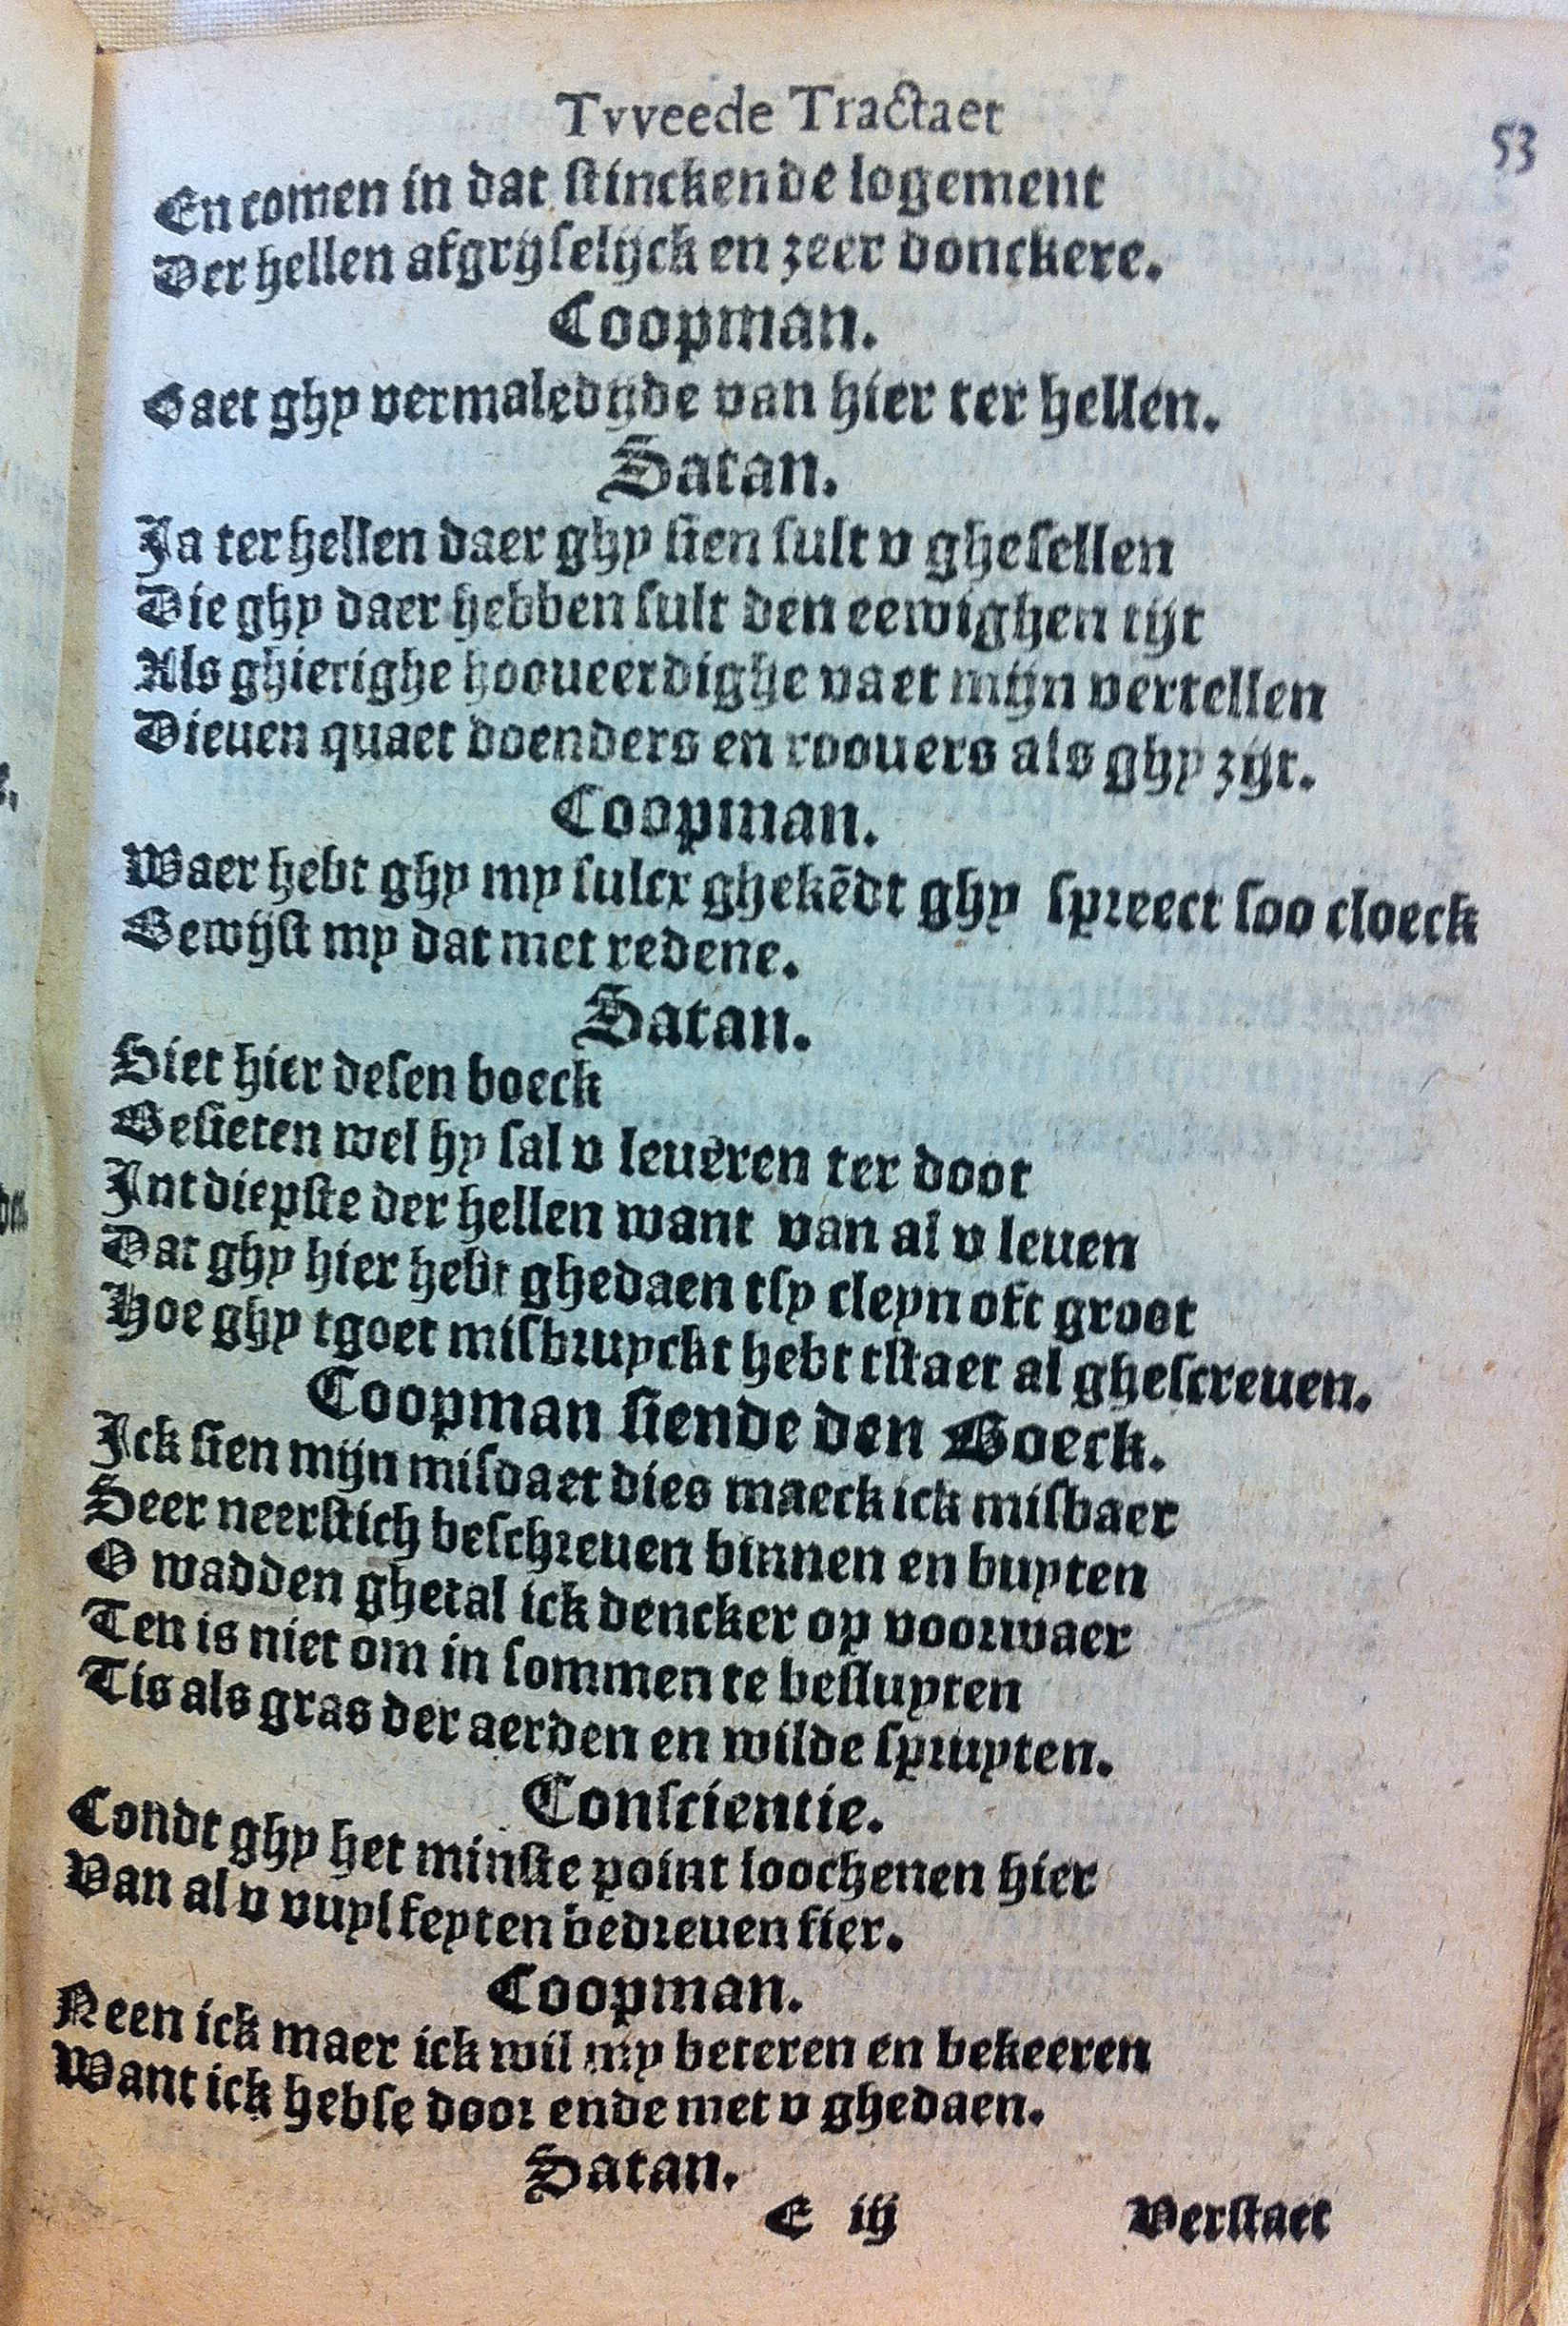 Tvveede Tractaet
53
En comen in dat stinckende logement
Der hellen afgrijselijck en zeer donckere.
Coopman.
Gaet ghy vermaledijde van hier ter hellen.
Satan.
Ja ter hellen daer ghy sien sult v ghesellen
Die ghy daer hebben sult den eewighen tijt
Als ghierighe hooueerdighe vaet mijn vertellen
Dieuen quaet doenders en roouers als ghy zijt.
Coopman.
Waer hebt ghy my sulcx ghekẽdt ghy spreect soo cloeck
Bewijst my dat met redene.
Satan.
Siet hier desen boeck
Besieten wel hy sal v leueren ter doot
Int diepste der hellen want van al v leuen
Dat ghy hier hebt ghedaen tsy cleyn oft groot
Hoe ghy tgoet misbruyckt hebt tstaet al ghescreuen.
Coopman siende den Boeck.
Ick sien mijn misdaet dies maeck ick misbaer
Seer neerstich beschreuen binnen en buyten
O wadden ghetal ick dencker op voorwaer
Ten is niet om in sommen te besluyten
Tis als gras der aerden en wilde spruyten.
Conscientie.
Condt ghy het minste point loochenen hier
Van al v vuyl feyten bedreuen fier.
Coopman.
Neen ick maer ick wil my beteren en bekeeren
Want ick hebse door ende met v ghedaen.
Satan.
E iij
Verstaet